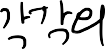 각각의